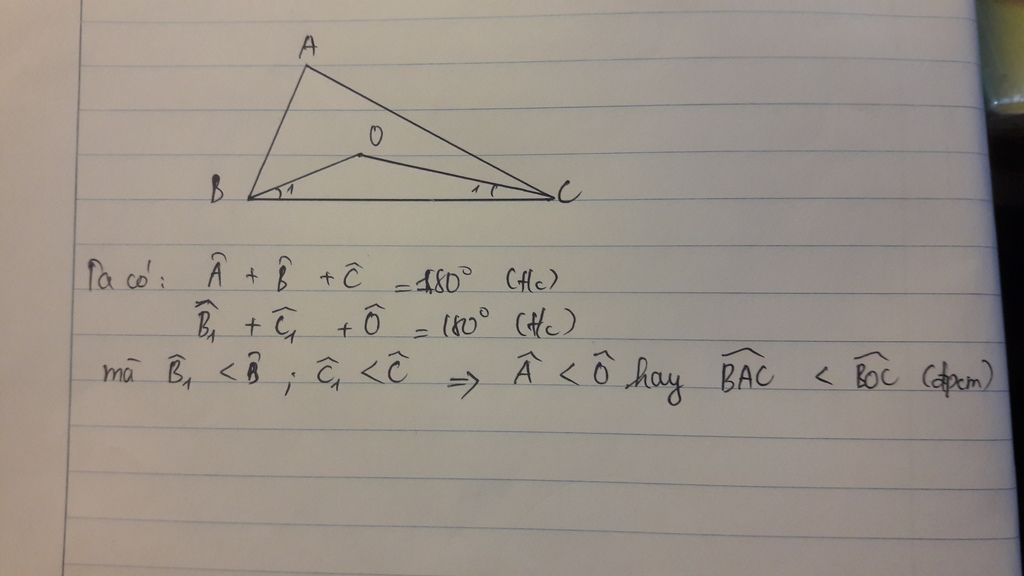 A
O
B 1 1 C
Ta có: Â + B̂ + Ĉ = 180° (t/c)
B̂₁ + Ĉ₁ + Ô = 180° (t/c)
mà B̂₁ < B̂ ; Ĉ₁ < Ĉ => Â < Ô hay BAC < BOC (đpcm)